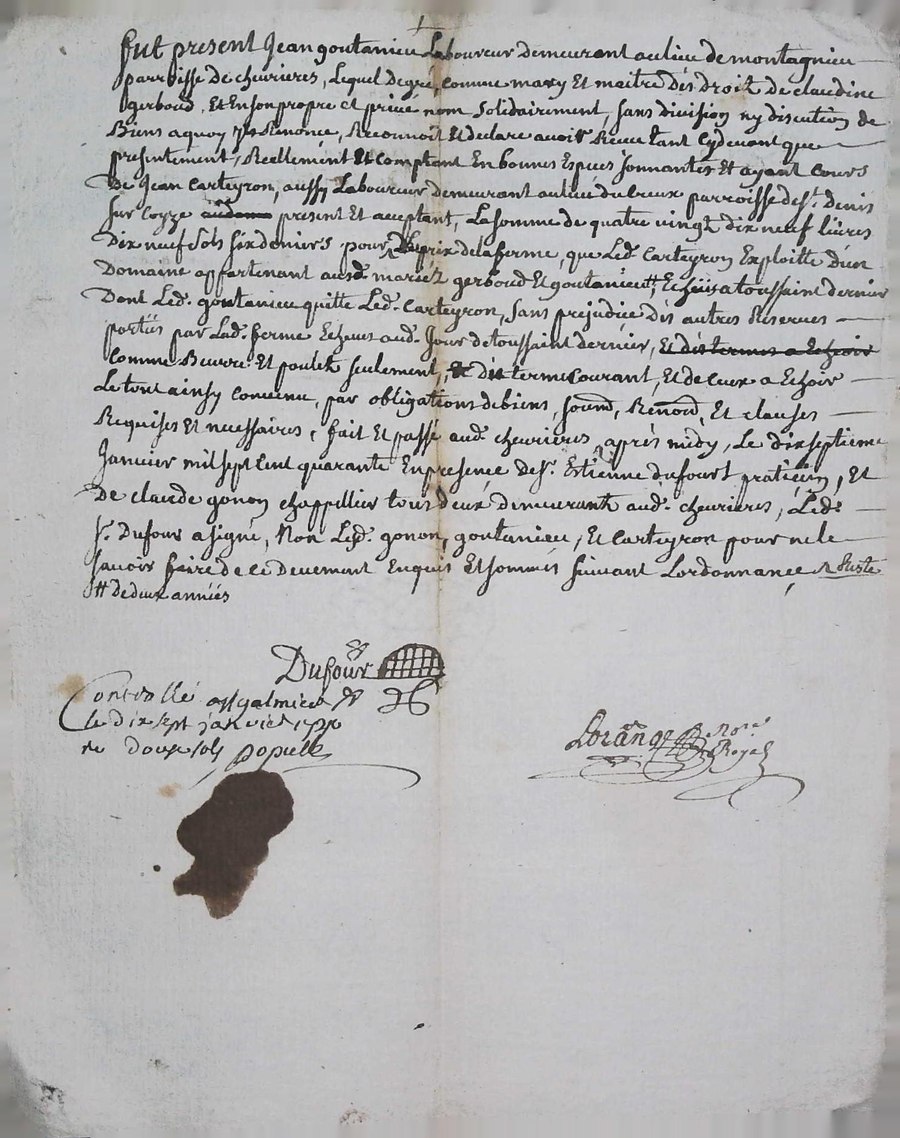 fut present Jean goutanieu Laboureur demeurant aulieu de montagnieu
parroisse de chevrieres, Lequel degré, comme mary Et maitre Des droit de claudine
gerboud, Et Enson propre et privé nom Solidairement, sans division ny discution de
Biens a quoy Renonce, Reconnoit Et declare avoir Receu tant Cydevant que
presentement, Reellement Et Comptant En bonnes Especes sonnantes Et ayant Cours
De Jean Carteyron, aussy Laboureur demeurant aulieu du parroisse de st. Denis
sur Coyze present Et aceptant, La somme de quatre vingt dix neuf livres
Dix neuf sols six deniers pour Le prix de la ferme, que Led. Carteyron Exploitte d'un
Domaine appartenant ausd. mariéz gerboud Et goutanieu #, a toussaint dernier
Dont Led. goutanieu quitte Led. Carteyron, sans prejudice Dés autres Reserves
portéés par Lad. ferme Echeues aud. Jour de toussaint dernier, Et des termes a Echoir
Comme Beurre Et poulets seulement, terme Courant, Et de Ceux a Echoir
Le tout ainsy Convenu, par obligations de biens, soumd, Renond, Et clauses
Requises Et necessaires, fait Et passé aud. chevrieres, aprés midy, Le dixseptieme
Janvier mil sept Cent quarante En presence de sr. Estienne dufour praticien, Et
De claude gonon chappellier tous deux demeurants aud. chevrieres, Led.
sr. Dufour a signé, Non Lesd. gonon, goutanieu, Et Carteyron pour ne le
savoir faire de ce Deuement Enquis Et sommés suivant Lordonnance
# de deux annéés
Dufour
Controllé a st galmier
le dix sept janvier 1740
Re douze sols populle
Lorange Nore.
Royal